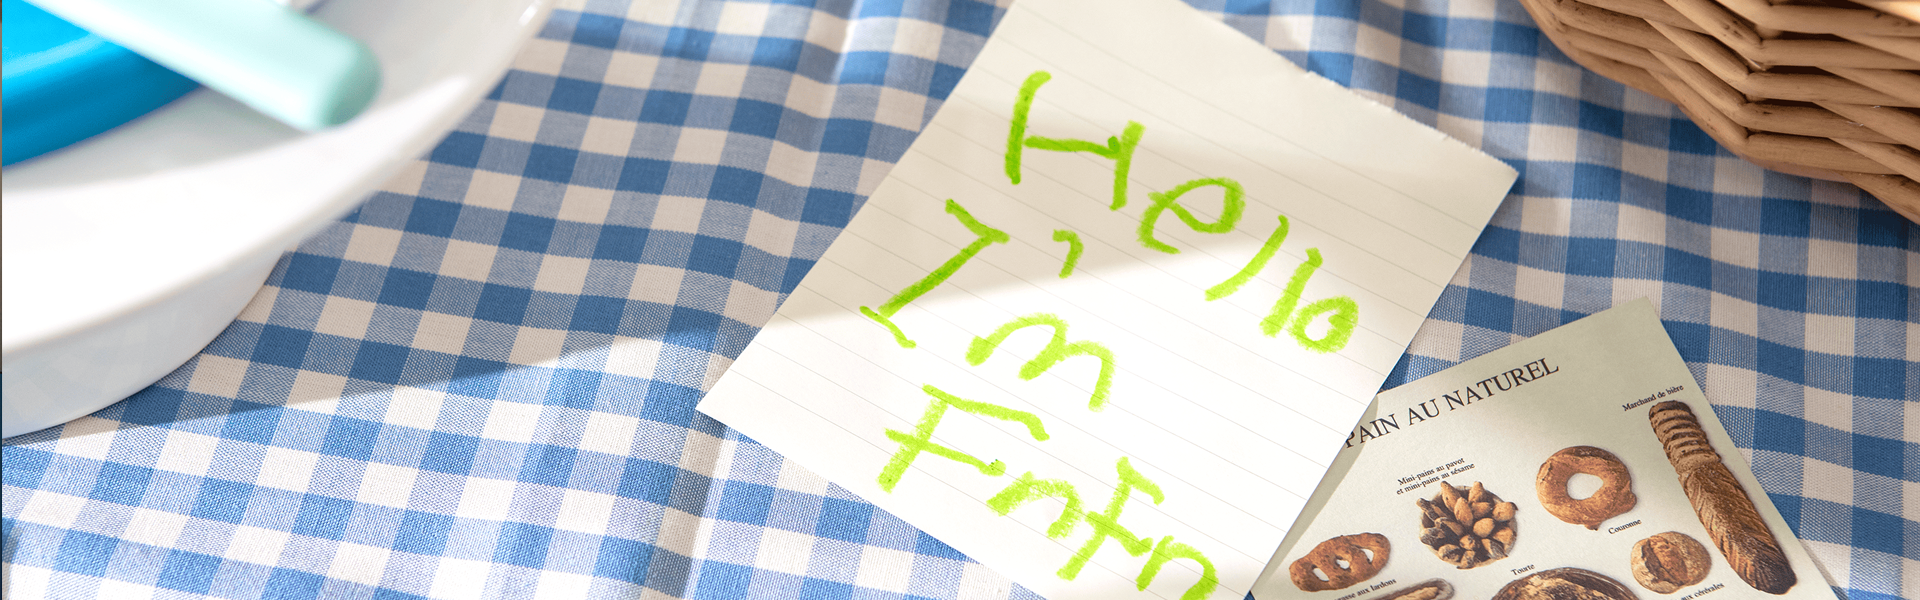 Hello
I'm
FnFn
PAIN AU NATUREL
Marchand de bière
Mini-pains au pavot
et mini-pains au sésame
Couronne
Tourte
aux lardons
aux céréales